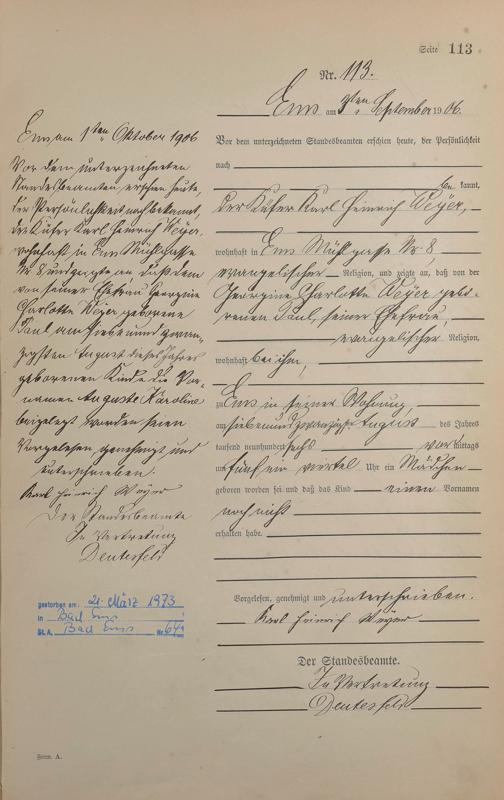 Seite 113
Nr. 113.
Ems am 3ten September 1906.
Vor dem unterzeichneten Standesbeamten erschien heute, der Persönlichkeit
nach
be kannt,
der Küfer Karl Heinrich Weyer,
wohnhaft in Ems Mühlgasse Nr 8,
evangelischer Religion, und zeigte an, daß von der
Georgine Charlotte Weyer gebo-
renen Paul, seiner Ehefrau,
evangelischer Religion,
wohnhaft bei ihm,
zu Ems in seiner Wohnung,
am siebenundzwanzigsten August des Jahres
tausend neunhundert sechs vor mittags
um fünf ein viertel Uhr ein Mädchen
geboren worden sei und daß das Kind einen Vornamen
noch nicht
erhalten habe.
Vorgelesen, genehmigt und unterschrieben.
Karl Heinrich Weyer
Der Standesbeamte.
In Vertretung
Ems am 1ten Oktober 1906
Vor dem unterzeichneten
Standesbeamten erschien heute,
der Persönlichkeit nach bekannt,
der Küfer Karl Heinrich Weyer,
wohnhaft in Ems Mühlgasse
Nr 8, und zeigte an, daß dem
von seiner Ehefrau Georgine
Charlotte Weyer geborene
Paul, am siebenundzwan-
zigsten August dieses Jahres
geborenen Kinde die Vor-
namen Auguste Karoline
beigelegt worden seien
Vorgelesen, genehmigt und
unterschrieben.
Karl Heinrich Weyer
Der Standesbeamte
In Vertretung
gestorben am: 21. März 1973
in Bad Ems
St. A. Bad Ems Nr. 64
Form. A.